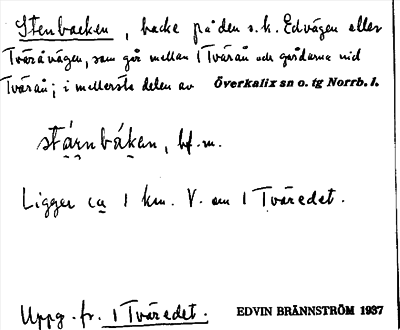 Stenbacken, backe på den s.k. Edvägen eller
Tväråvägen, som går mellan 1 Tvärån och gårdarna vid
Tvärån; i mellersta delen av Överkalix sn o. tg Norrb. l.
stá̱rnbá̱kan, bf. m.
Ligger ca 1 km. V. om 1 Tväredet.
Uppg. fr. 1 Tväredet. EDVIN BRÄNNSTRÖM 1937